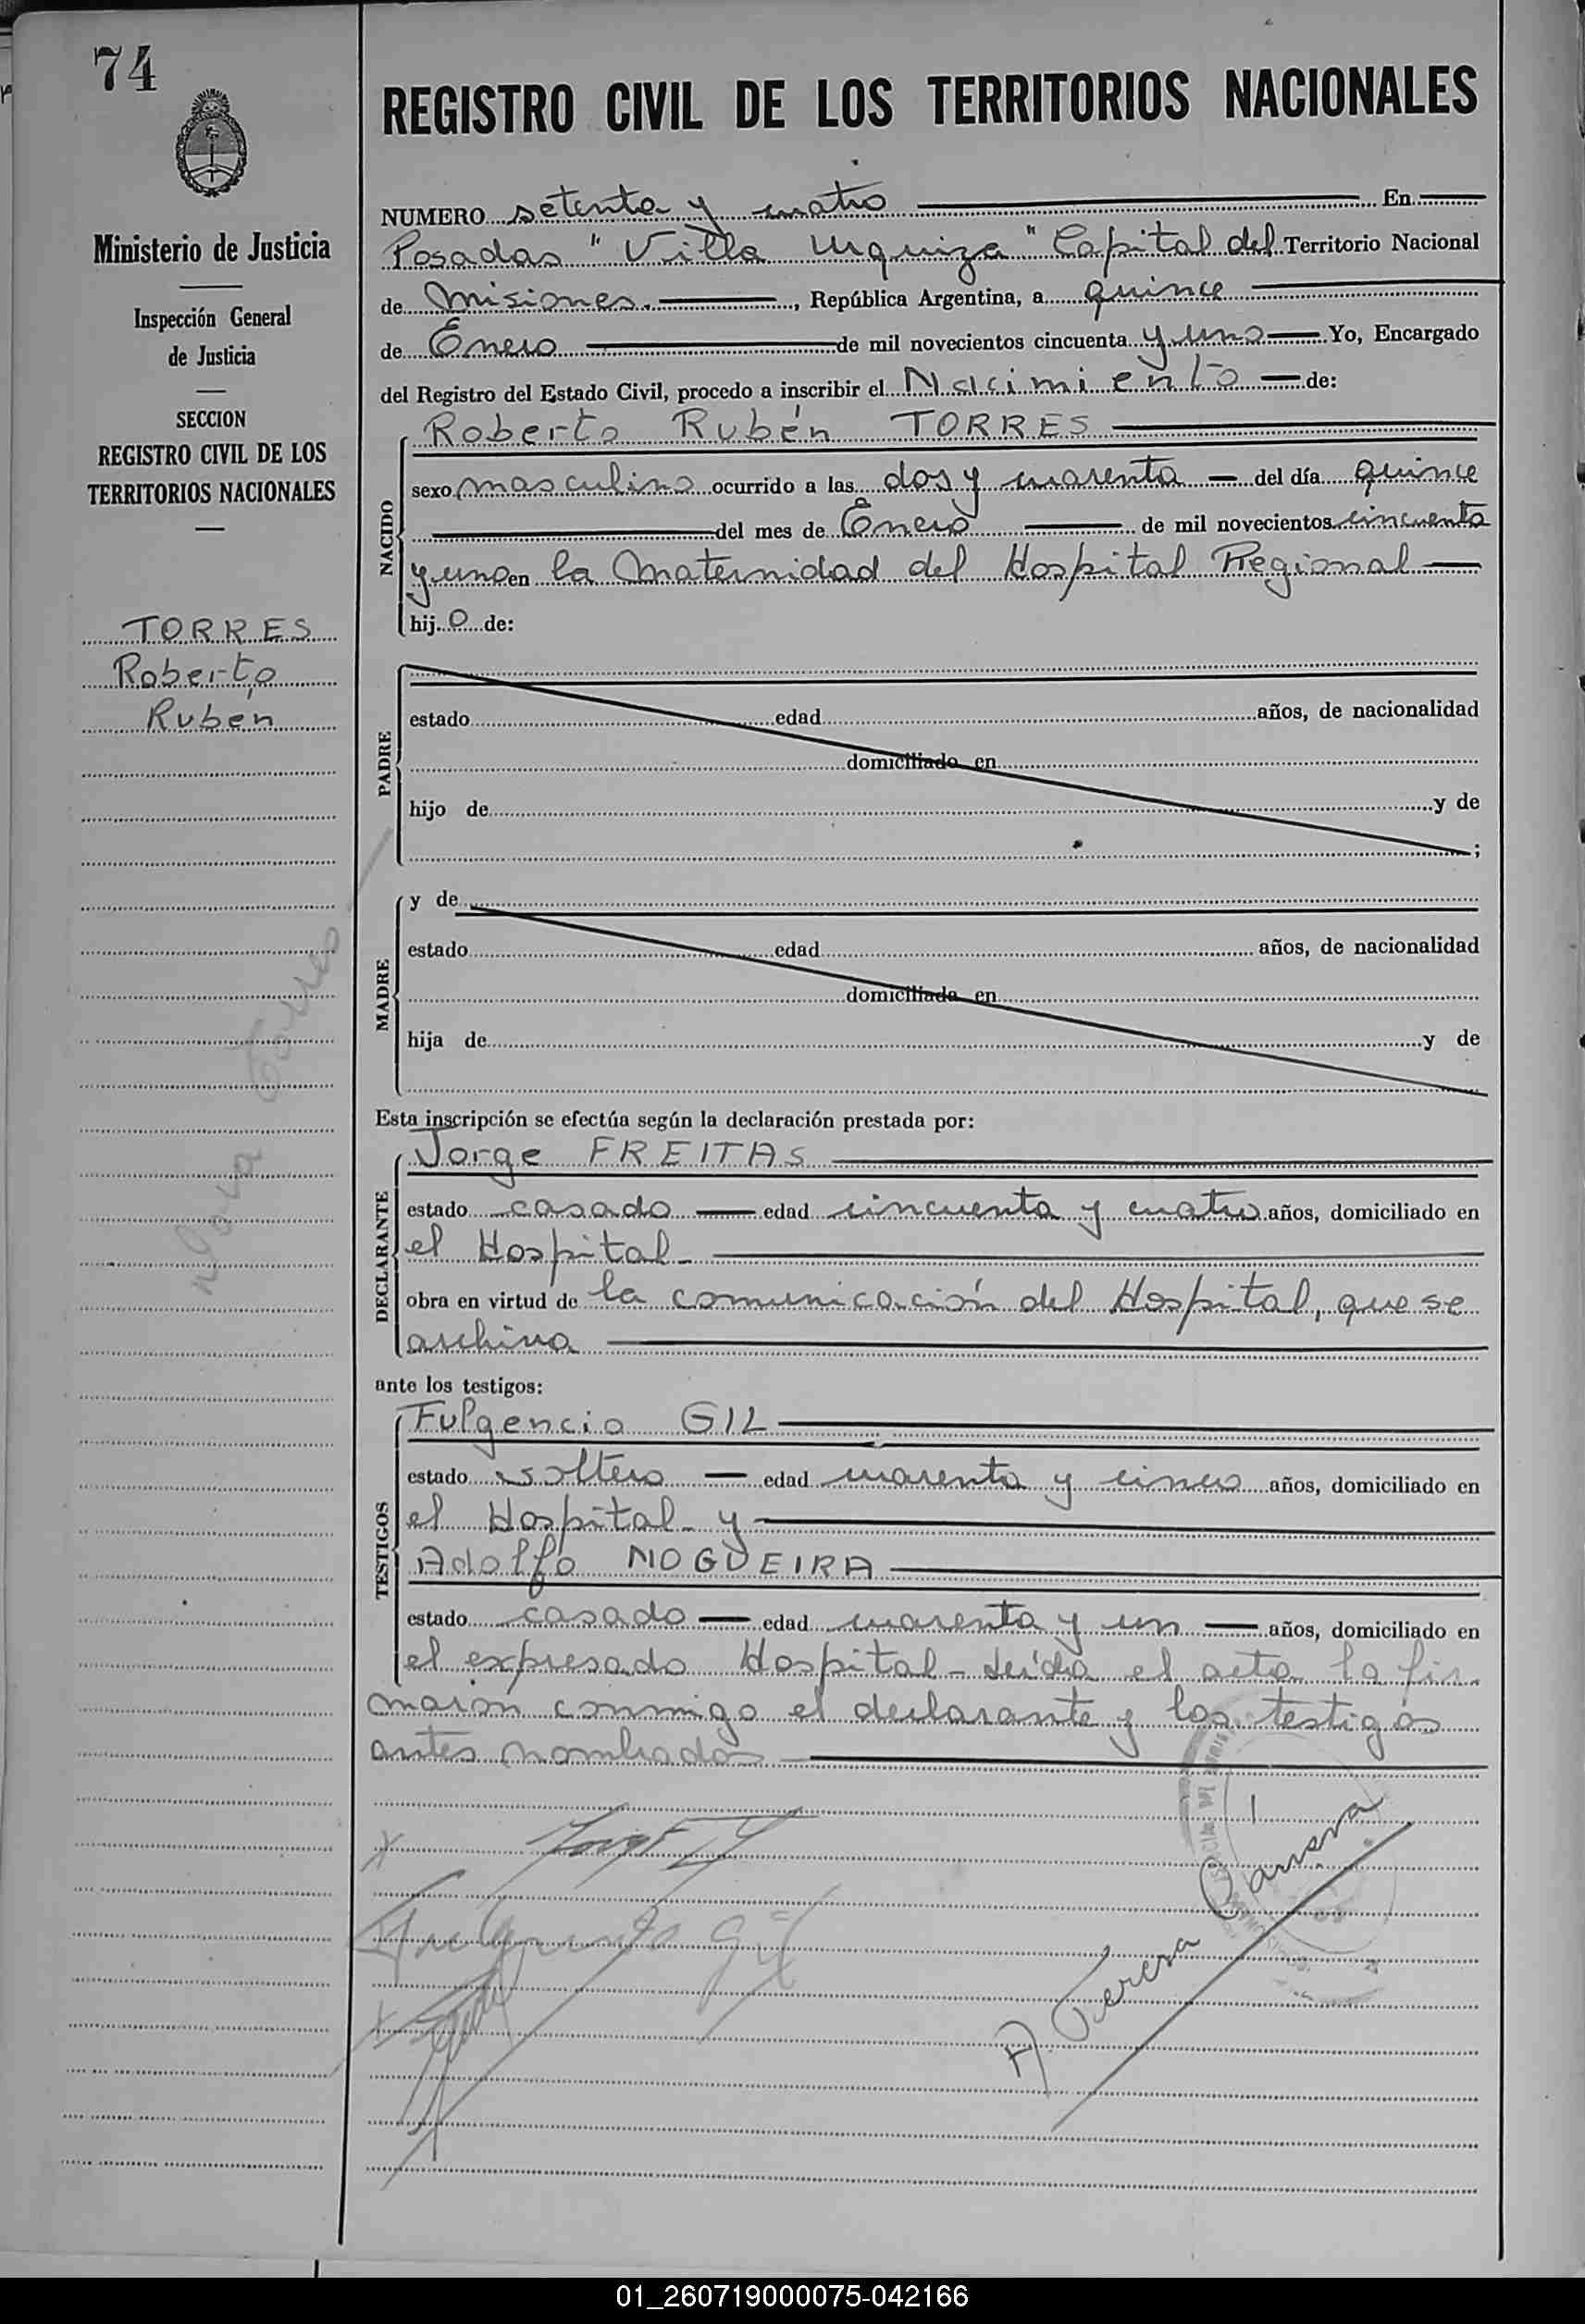 74
Ministerio de Justicia
Inspección General
de Justicia
SECCION
REGISTRO CIVIL DE LOS
TERRITORIOS NACIONALES
TORRES
Roberto
Rubén
REGISTRO CIVIL DE LOS TERRITORIOS NACIONALES
NUMERO setenta y cuatro En
Posadas "Villa Urquiza" Capital del Territorio Nacional
de Misiones., República Argentina, a quince
de Enero de mil novecientos cincuenta y uno Yo, Encargado
del Registro del Estado Civil, procedo a inscribir el Nacimiento de:
NACIDO
Roberto Rubén TORRES
sexo masculino ocurrido a las dos y cuarenta del día quince
del mes de Enero de mil novecientos cincuenta
y uno en la Maternidad del Hospital Regional
hijo de:
PADRE
estado edad años, de nacionalidad
domiciliado en
hijo de y de
;
MADRE
y de
estado edad años, de nacionalidad
domiciliada en
hija de y de
Esta inscripción se efectúa según la declaración prestada por:
DECLARANTE
Jorge FREITAS
estado casado edad cincuenta y cuatro años, domiciliado en
el Hospital
obra en virtud de la comunicación del Hospital, que se
archiva
ante los testigos:
TESTIGOS
Fulgencio GIL
estado soltero edad cuarenta y cinco años, domiciliado en
el Hospital y
Adolfo NOGUEIRA
estado casado edad cuarenta y un años, domiciliado en
el expresado Hospital - Leída el acta la fir-
maron conmigo el declarante y los testigos
antes nombrados
Fulgencio Gil
A Teresa Carrera
01_260719000075-042166